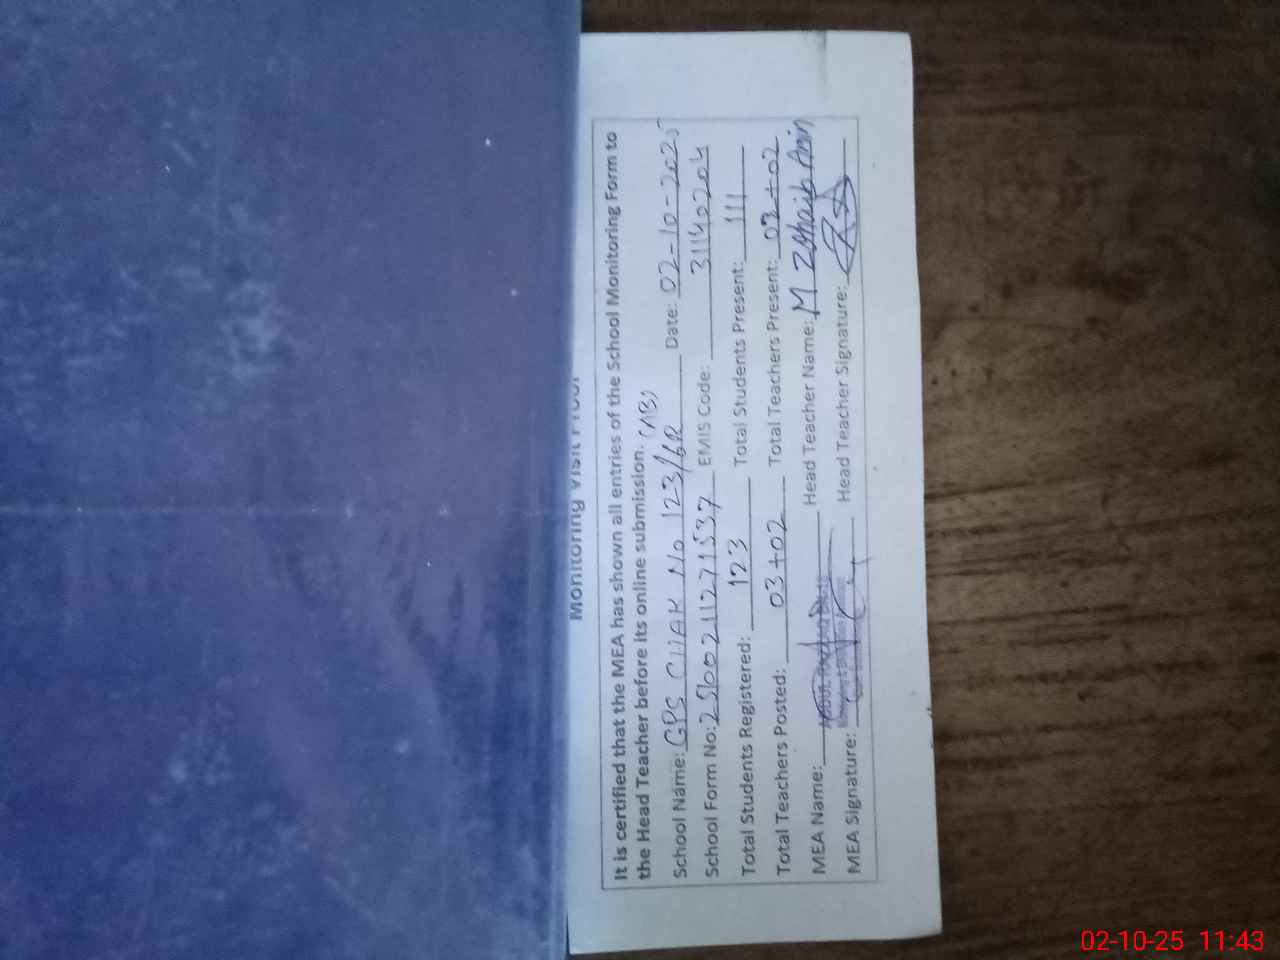 Monitoring Visit Proof
It is certified that the MEA has shown all entries of the School Monitoring Form to
the Head Teacher before its online submission. (AB)
School Name: GPS CHAK No 123/6R Date: 02-10-2025
School Form No: EMIS Code: 31140204
Total Students Registered: 123 Total Students Present: 111
Total Teachers Posted: 03+02 Total Teachers Present: 03+02
MEA Name: Head Teacher Name: M Zohaib Amin
MEA Signature: Head Teacher Signature:
02-10-25 11:43